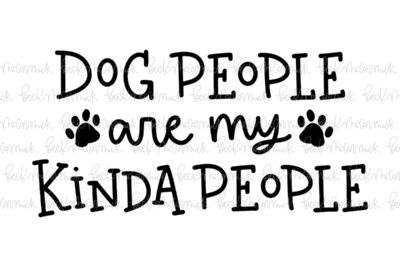 DOG PEOPLE
are my
KINDA PEOPLE